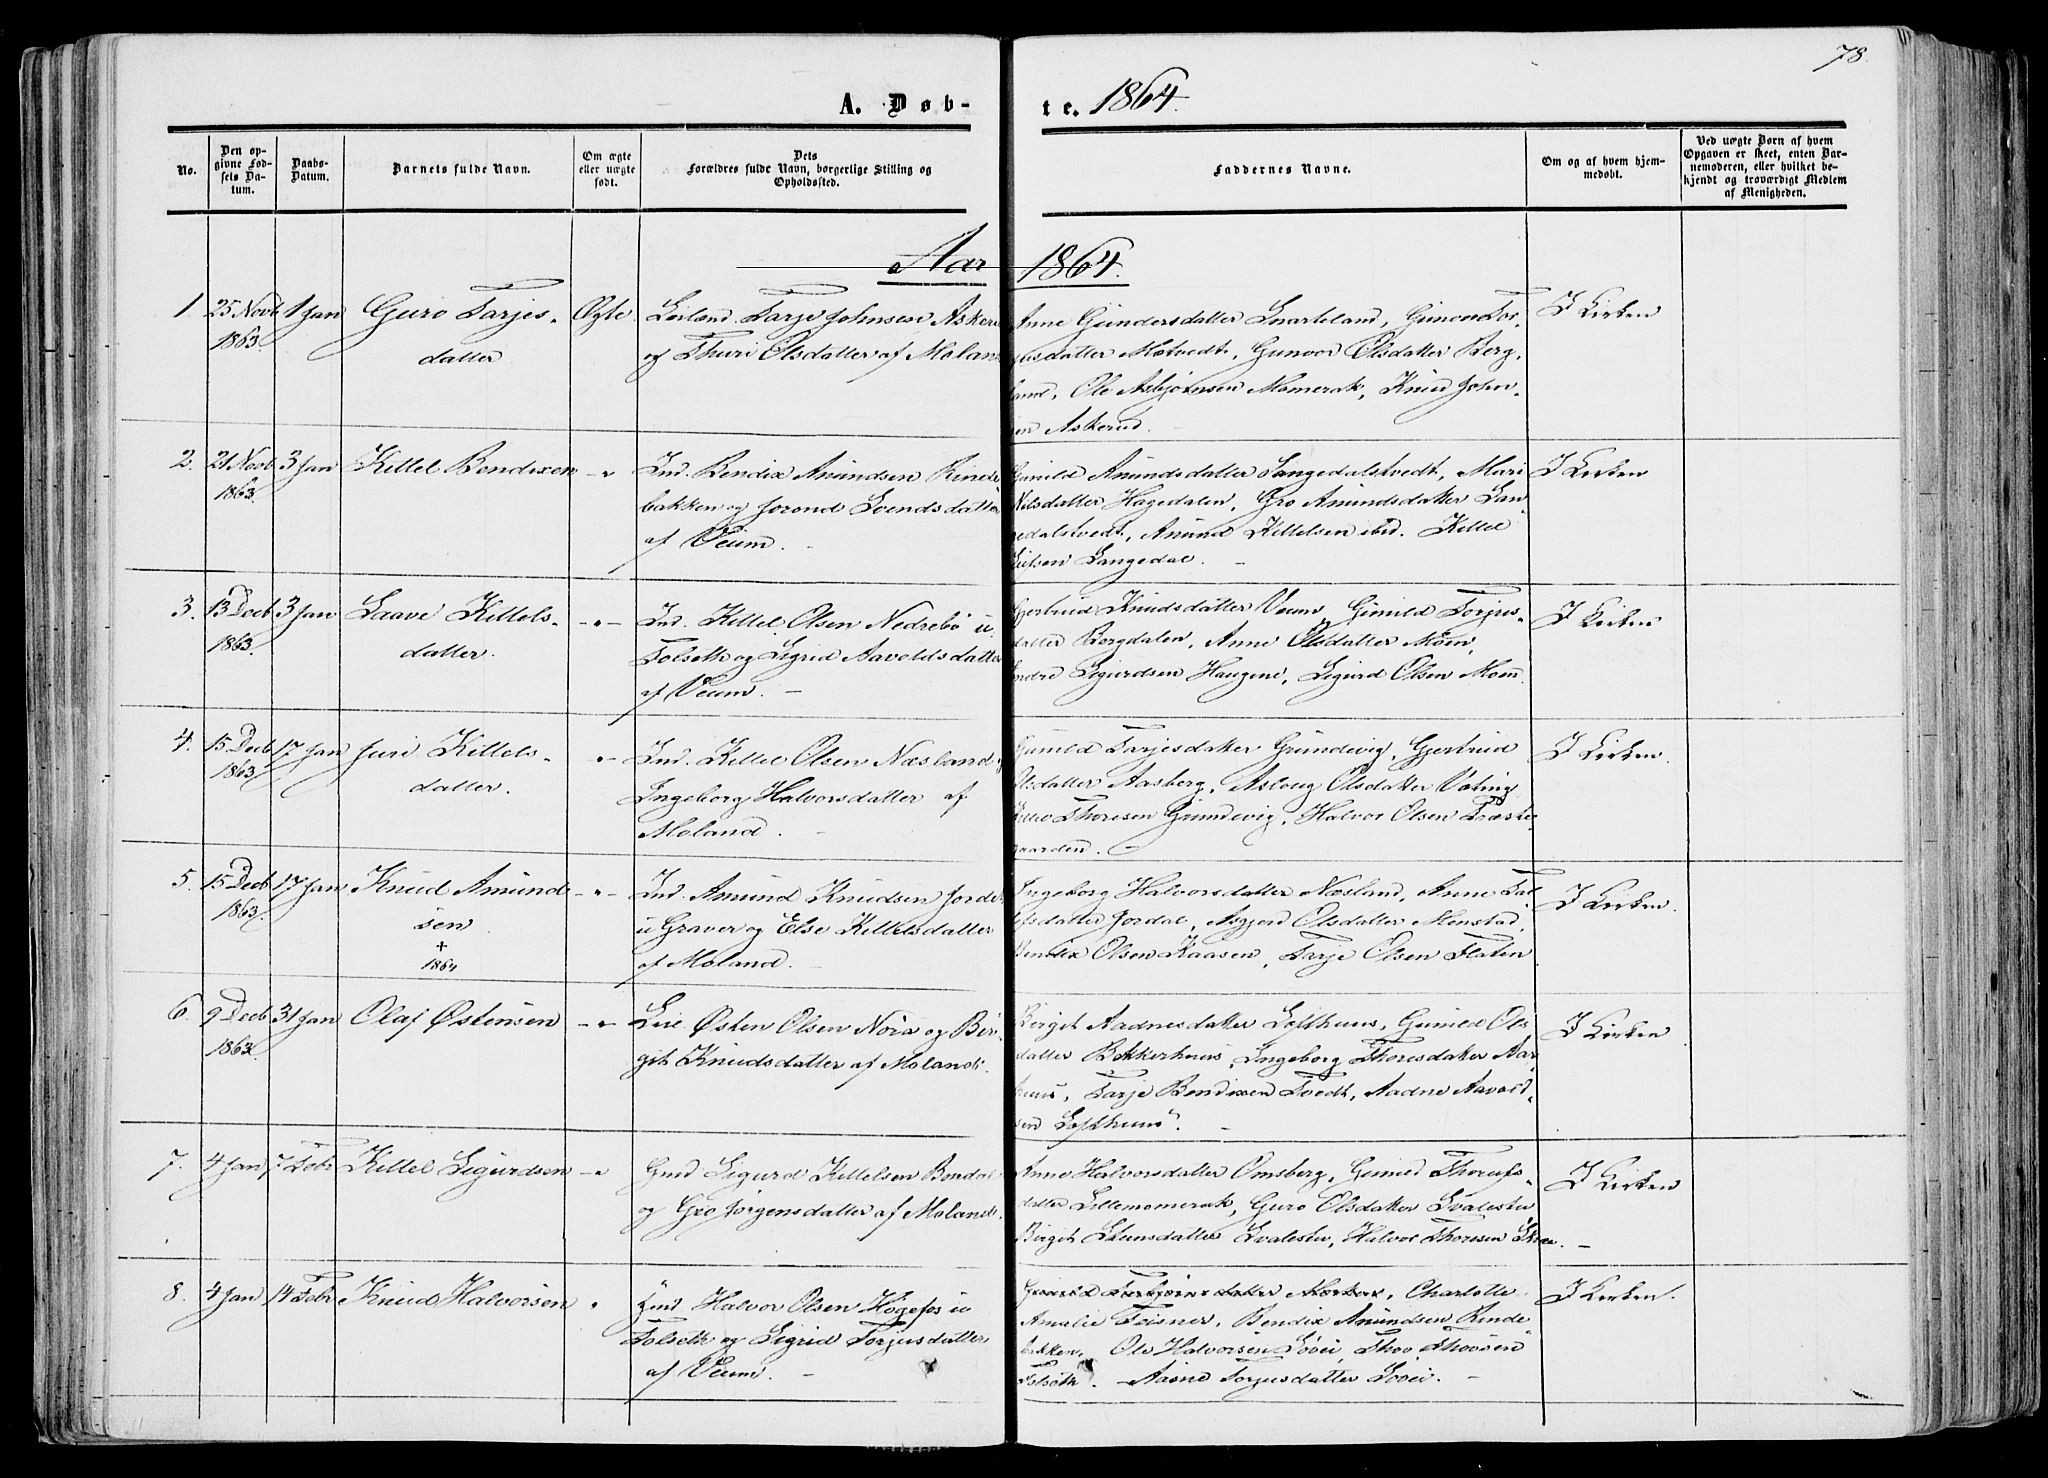 78.
A. Døb-
te. 1864.
No.
Den op-
givne Fød-
sels Da-
tum.
Daabs-
Datum.
Barnets fulde Navn.
Om ægte
eller uægte
født.
Dets
Forældres fulde Navn, borgerlige Stilling og
Opholdssted.
Faddernes Navne.
Om og af hvem hjem-
medøbt.
Ved uægte Børn af hvem
Opgaven er skeet, enten Bar-
nemoderen, eller hvilket be-
kjendt og troværdigt Medlem
af Menigheden.
Aar 1864.
1. 25 Novb 1 Jan Guro Tarjes-
1863.
datter
Ægte
Tarje Johnsen Asker
og Thuri Olsdatter af Moland
Anne Gundersdatter Snarteland, Tor-
datter Motvedt, Gunvor Olsdatter Berg-
land, Ole Asbjørnsen Momrak, Knud John-
sen Askerud.
I Kirken
2. 21 Novb 3 Jan Kittel Bendixen
1863.
Ind. Bendix Amundsen Rinde
bakken og Jorond Svendsdatter
af Veum.
Gunild Amundsdatter Langedalstvedt, Mari
Nilsdatter Hagedalen, Gro Amundsdatter Lan-
gedalstvedt, Amund Kittelsen ibid. Kittel
Langedal.
I Kirken
3. 13 Decb 3 Jan Laave Kittels-
1863.
datter.
Ind. Kittel Olsen Nedrebø u.
Folseth og Sigrid Aavoldsdatter
af Veum.
Gjertrud Knudsdatter Veum, Gunild Torjus-
datter Bergdalen, Anne Olsdatter Moen,
Sigurdsen Haugene, Sigurd Olsen Moen.
I Kirken
4. 15 Decb 17 Jan Juri Kittels-
1863.
datter.
Ind. Kittel Olsen Næsland og
Ingeborg Halvorsdatter af
Moland.
Gunild Tarjesdatter Grundevig, Gjertrud
Olsdatter Aasberg, Aslaug Olsdatter
Thoresen Grundevig, Halvor Olsen Præste-
gaarden.
I Kirken.
5. 15 Decb 17 Jan Knud Amund-
1863.
sen
+
1864
Ind. Amund Knudsen
u Graver og Else Kittelsdatter
af Moland.
Ingeborg Halvorsdatter Næsland, Anne
datter Jordal, Asgjerd Olsdatter Menstad,
Bendix Olsen Kaasen, Tarje Olsen Flaten
I Kirken.
6. 9 Decb 31 Jan Olaf Østensen
1863.
Østen Olsen Nora og Bir-
git Knudsdatter af Moland.
Birgit Aadnesdatter Lofthuus, Gunild Ols-
datter Bakkerhuus, Ingeborg Thoresdatter Aar-
huus, Tarje Bendixen Tvedt, Aadne Aavold-
sen Lofthuus.
I Kirken
7. 4 Jan 7 Febr Kittel Sigurdsen
Gmd Sigurd Kittelsen Bondal
og Gro Jørgensdatter af Moland.
Anne Halvorsdatter Omsberg, Gunild
datter Lillemomrak, Guro Olsdatter
Birgit datter Halvor Thoresen
I Kirken
8. 4 Jan 14 Febr Knud Halvorsen
Gmd Halvor Olsen Høgefos u
Folseth og Sigrid Torjusdatter
af Veum.
Gunild Charlotte
Amalie Bendix Amundsen Rinde
bakken, Ole Halvorsen
Folseth. Aasne Torjusdatter
I Kirken.